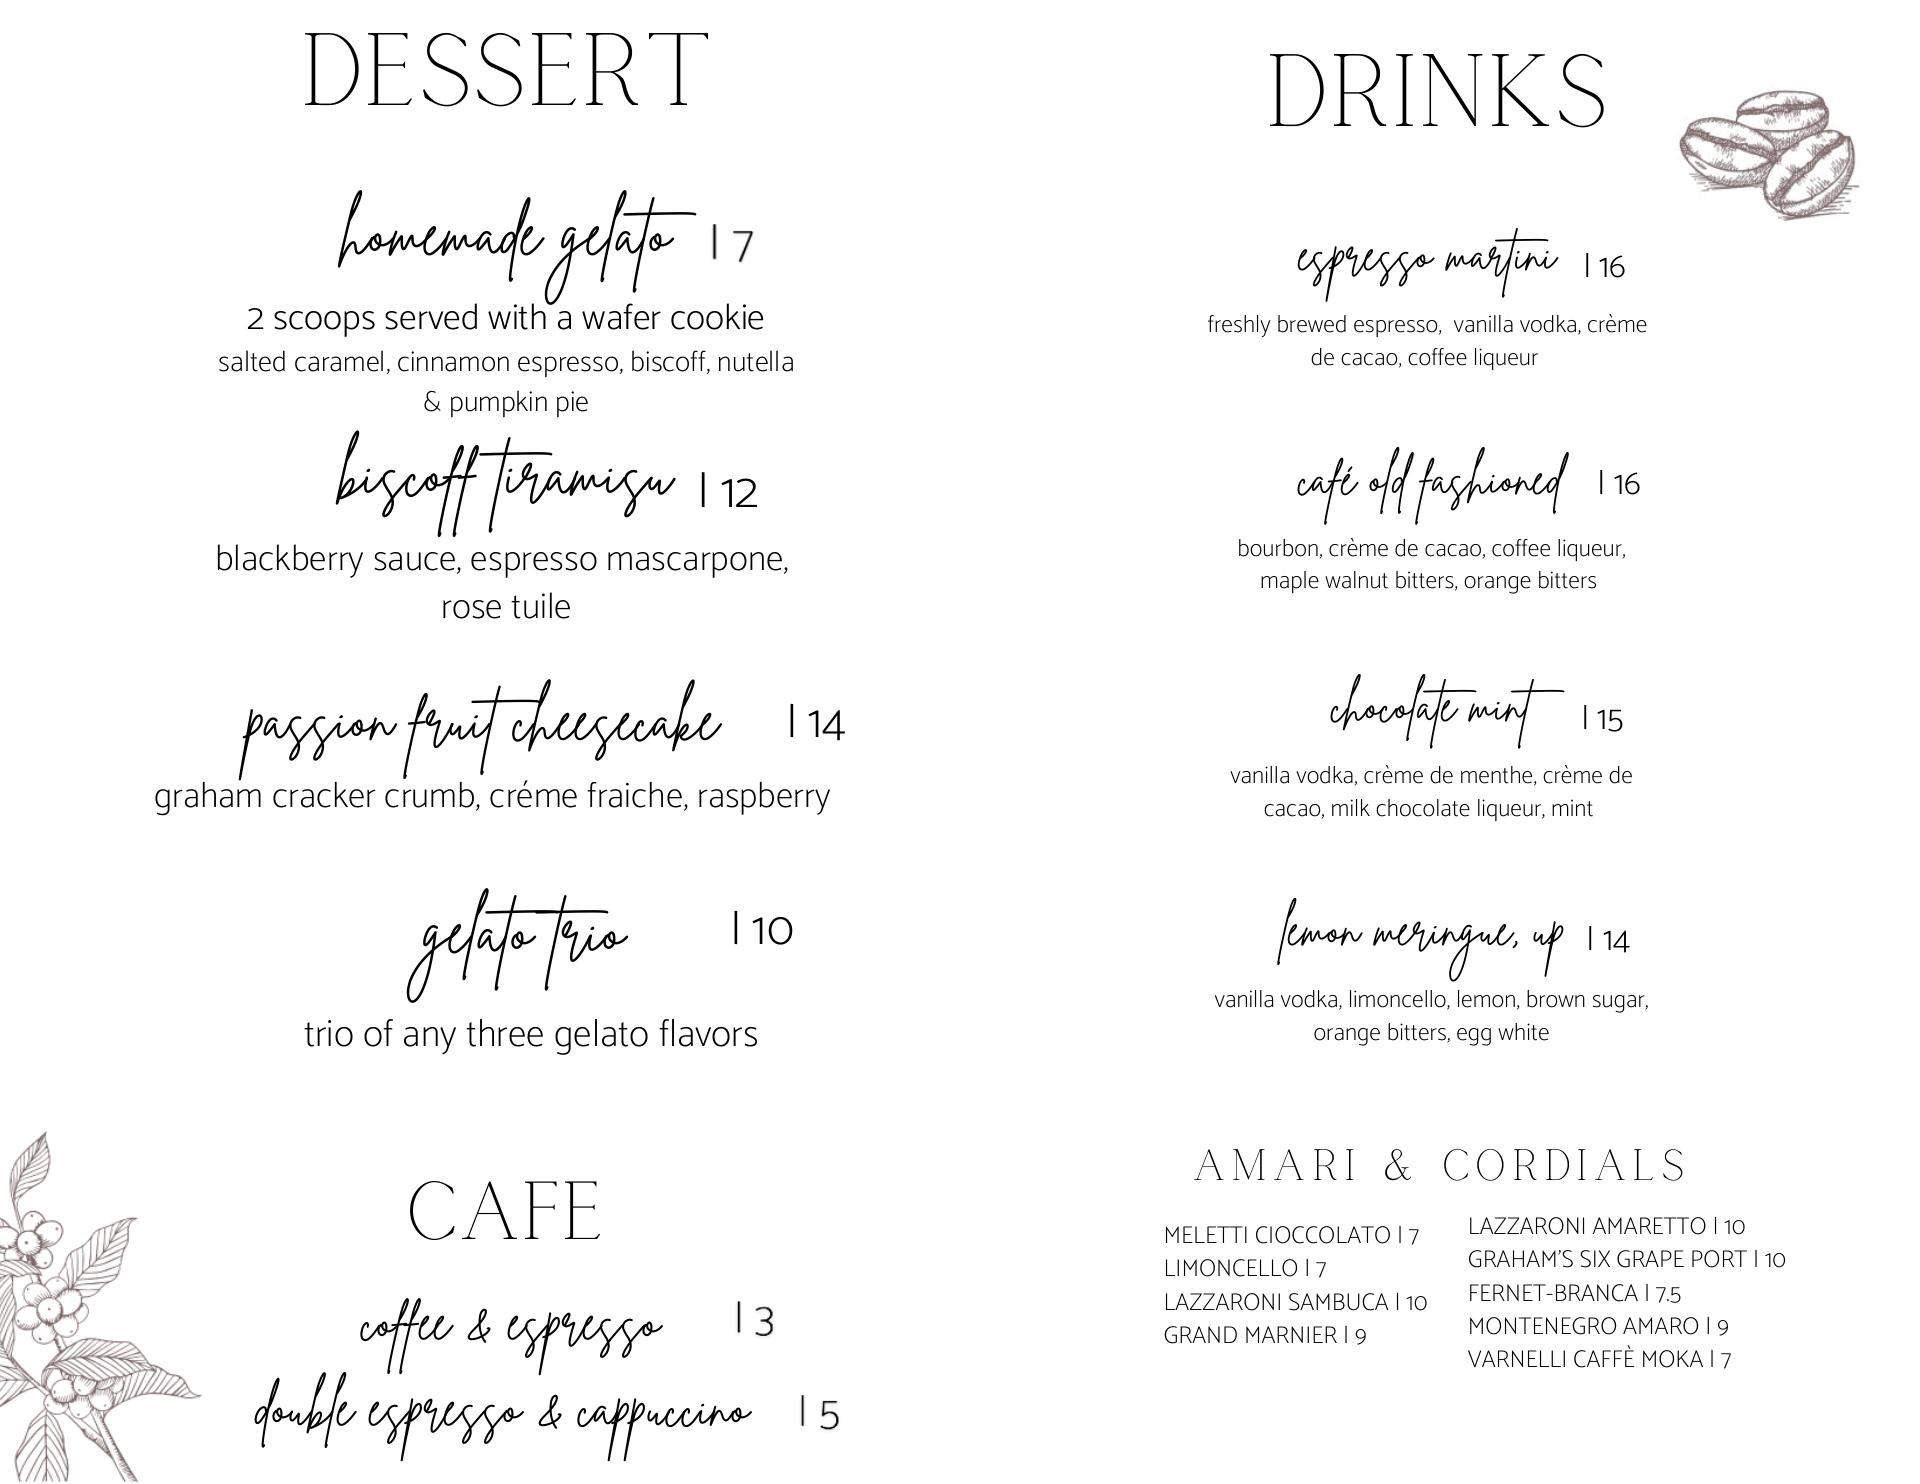 DESSERT
homemade gelato | 7
2 scoops served with a wafer cookie
salted caramel, cinnamon espresso, biscoff, nutella
& pumpkin pie
biscoff tiramisu | 12
blackberry sauce, espresso mascarpone,
rose tuile
passion fruit cheesecake | 14
graham cracker crumb, créme fraiche, raspberry
gelato trio | 10
trio of any three gelato flavors
CAFE
coffee & espresso | 3
double espresso & cappuccino | 5
DRINKS
espresso martini | 16
freshly brewed espresso, vanilla vodka, crème
de cacao, coffee liqueur
café old fashioned | 16
bourbon, crème de cacao, coffee liqueur,
maple walnut bitters, orange bitters
chocolate mint | 15
vanilla vodka, crème de menthe, crème de
cacao, milk chocolate liqueur, mint
lemon meringue, up | 14
vanilla vodka, limoncello, lemon, brown sugar,
orange bitters, egg white
AMARI & CORDIALS
MELETTI CIOCCOLATO | 7
LIMONCELLO | 7
LAZZARONI SAMBUCA | 10
GRAND MARNIER | 9
LAZZARONI AMARETTO | 10
GRAHAM'S SIX GRAPE PORT | 10
FERNET-BRANCA | 7.5
MONTENEGRO AMARO | 9
VARNELLI CAFFÈ MOKA | 7